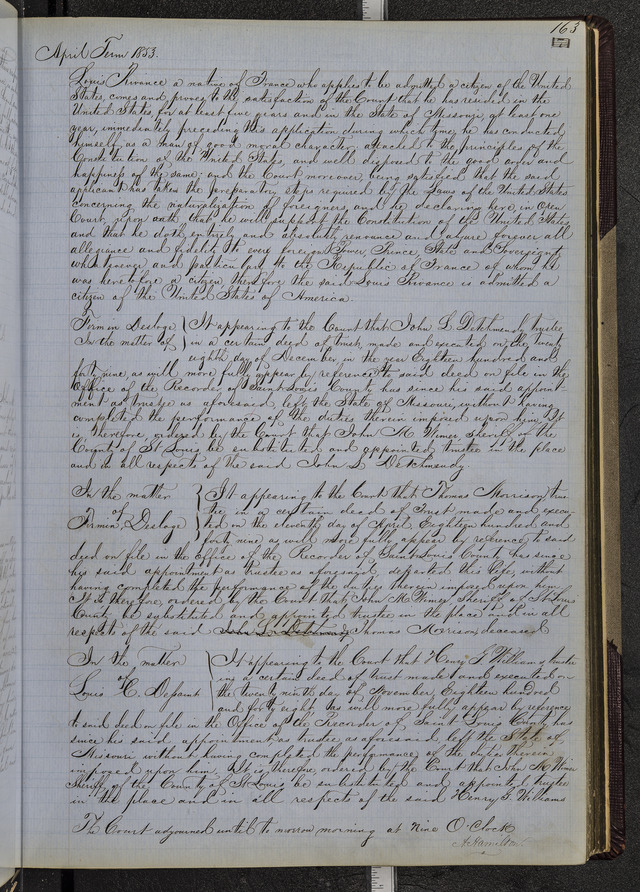 163
April Term 1853.
Louis Rivance a native of France who applies to be admitted a citizen of the United
States, comes and proves to the satisfaction of the Court that he has resided in the
United States, for at least five years and in the State of Missouri, at least one
year, immediately preceding this application, during which time, he has conducted
himself as a man of good moral character, attached to the principles of the
Constitution of the United States, and well disposed to the good order and
happiness of the same; and the Court moreover, being satisfied that the said
applicant has taken the preparatory steps required by the Laws of the United States
concerning the naturalization of foreigners, and he declaring here, in Open
Court, upon oath, that he will support the Constitution of the United States
and that he doth entirely and absolutely renounce and abjure forever all
allegiance and fidelity to every foreign Power, Prince, State and Sovereignty
whatsoever and particularly to the Republic of France of whom he
was heretofore a citizen therefore the said Louis Rivance is admitted a
citizen of the United States of America.
Firmin Desloge } It appearing to the Court that John L. Detchmendy trustee
In the matter of } in a certain deed of trust, made and executed on the twenty
eighth day of December in the year Eighteen hundred and
forty nine, as will more fully appear by reference to said deed on file in the
Office of the Recorder of Saint Louis County has since his said appoint-
ment as trustee as aforesaid, left the State of Missouri, without having
completed the performance of the duties therein imposed upon him, It
is, therefore, ordered by the Court that John M. Wimer, Sheriff of the
County of St Louis be substituted and appointed trustee in the place
and in all respects of the said John L. Detchmendy
In the matter } It appearing to the Court that Thomas Morrison trus-
of } tee, in a certain deed of Trust made and execu-
Firmin Desloge } ted on the eleventh day of April Eighteen hundred and
forty nine as will more fully appear by reference to said
deed on file in the Office of the Recorder of Saint Louis County has since
his said appointment as trustee as aforesaid, departed this life, without
having completed the performance of the duties therein imposed upon him,
It is therefore, ordered by the Court that John M. Wimer Sheriff of St Louis
County be substituted and appointed trustee in the place and in all
respects of the said John L. Detchmendy Thomas Morrison deceased
In the matter } It appearing to the Court that Henry G Williams trustee
of } in a certain deed of trust made and executed on
Louis C. } the twenty ninth day of November, Eighteen hundred
and forty eight, as will more fully appear by reference
to said deed on file in the Office of the Recorder of Saint Louis County, has
since his said appointment as trustee as aforesaid, left the State of
Missouri without having completed the performance of the duties therein
imposed upon him, It is, therefore, ordered by the Court that John M. Wimer
Sheriff of the County of St Louis be substituted and appointed trustee
in the place and in all respects of the said Henry G. Williams
The Court adjourned until to morrow morning at Nine O'Clock
A. Hamilton